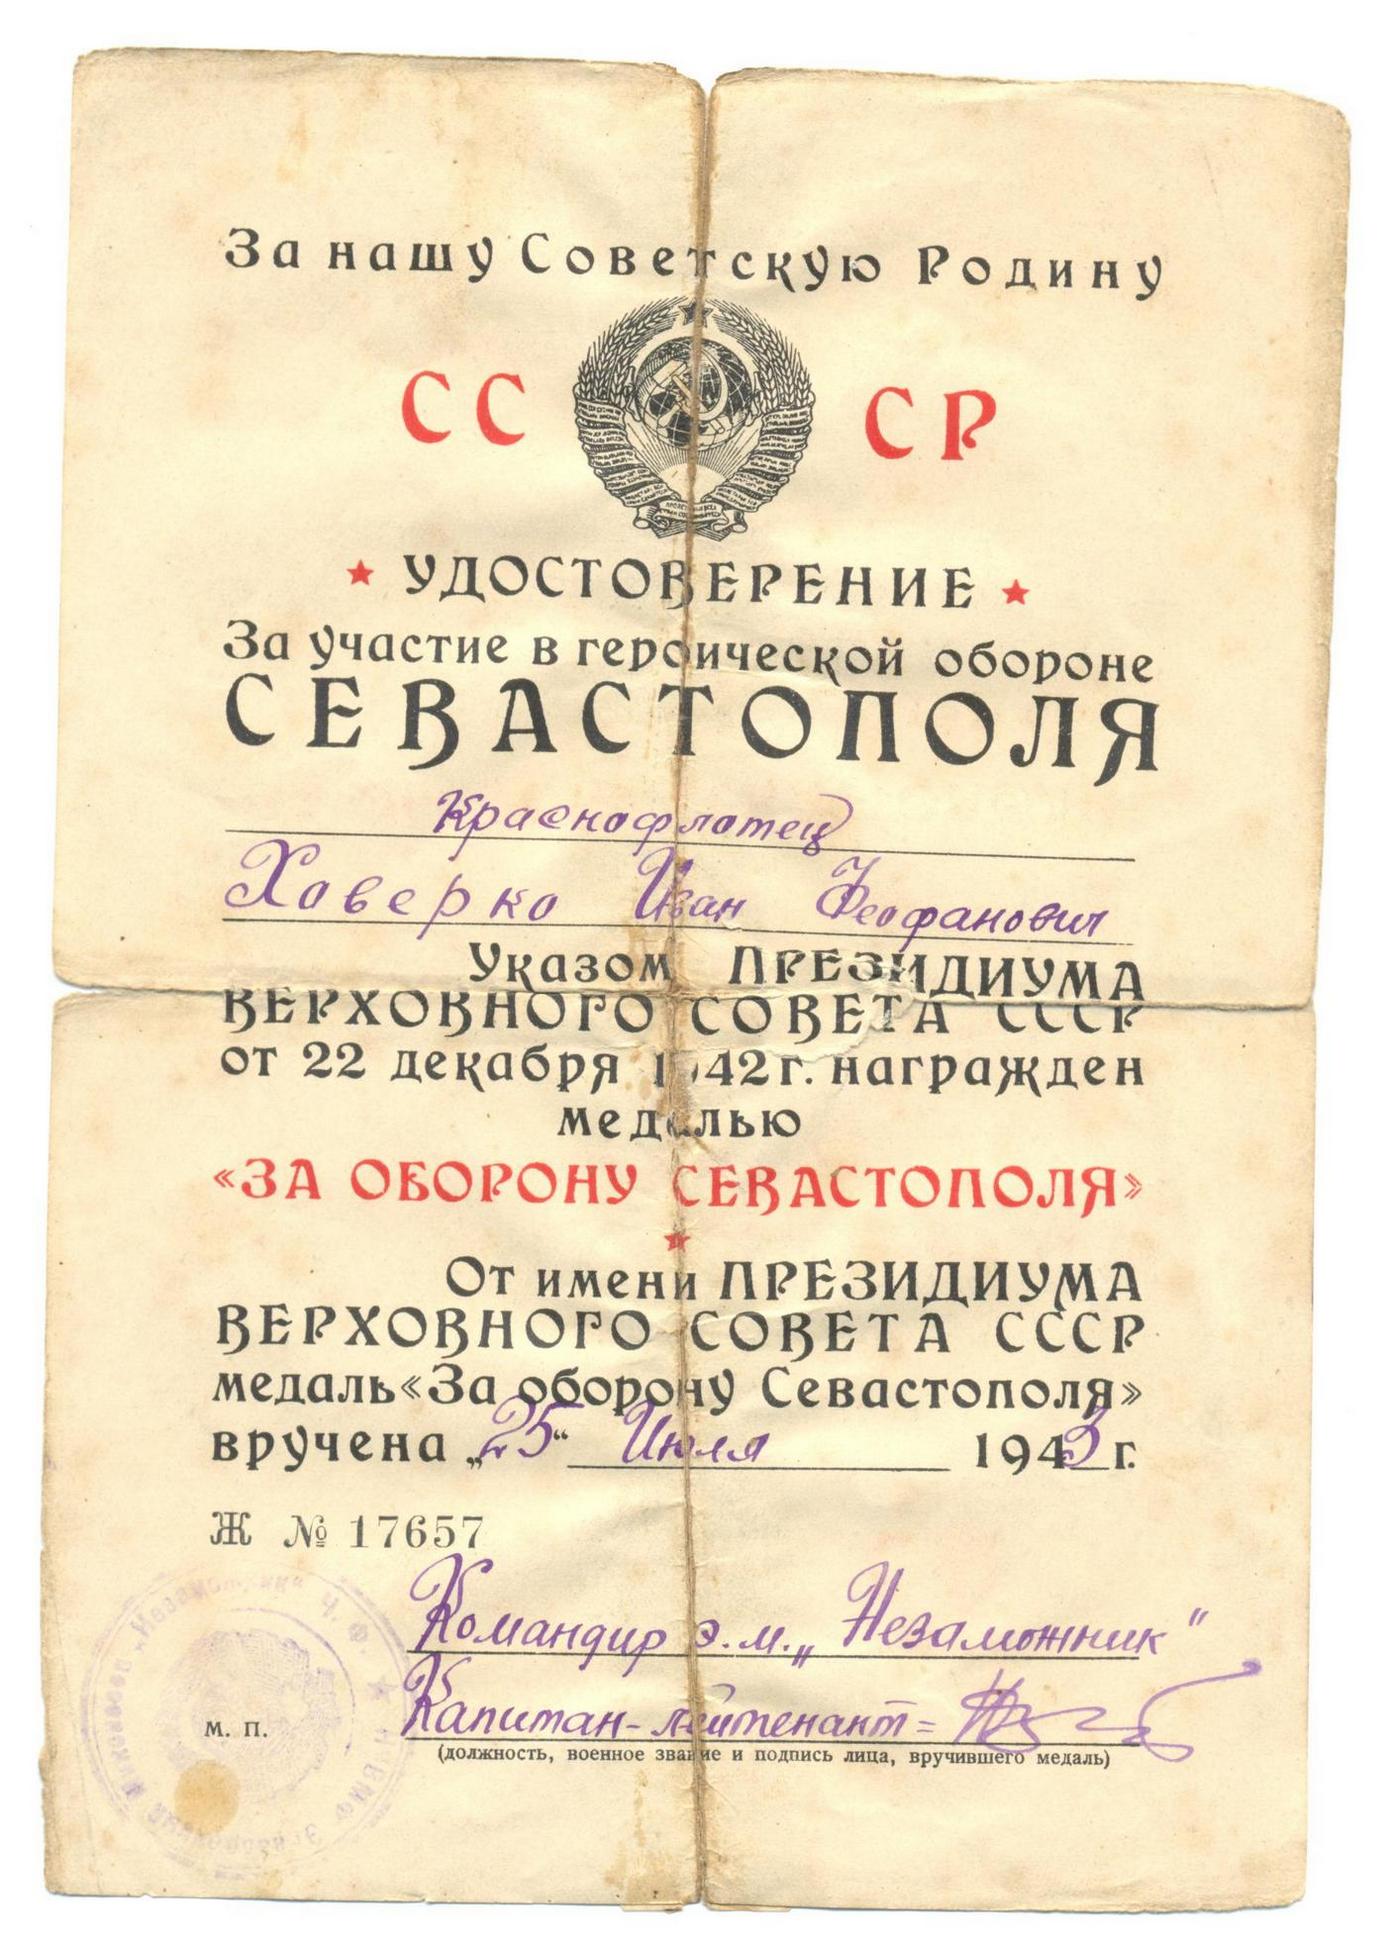 За нашу Советскую Родину
СС СР
УДОСТОВЕРЕНИЕ
За участие в героической обороне
СЕВАСТОПОЛЯ
Краснофлотец
Ховерко Иван Феофанович
Указом ПРЕЗИДИУМА
ВЕРХОВНОГО СОВЕТА СССР
от 22 декабря 1942 г. награжден
медалью
«ЗА ОБОРОНУ СЕВАСТОПОЛЯ»
От имени ПРЕЗИДИУМА
ВЕРХОВНОГО СОВЕТА СССР
медаль «За оборону Севастополя»
вручена „25“ Июля 1943 г.
Ж № 17657
Командир э.м. „Незаможник"
Капитан-лейтенант=
М. П.
(должность, военное звание и подпись лица, вручившего медаль)